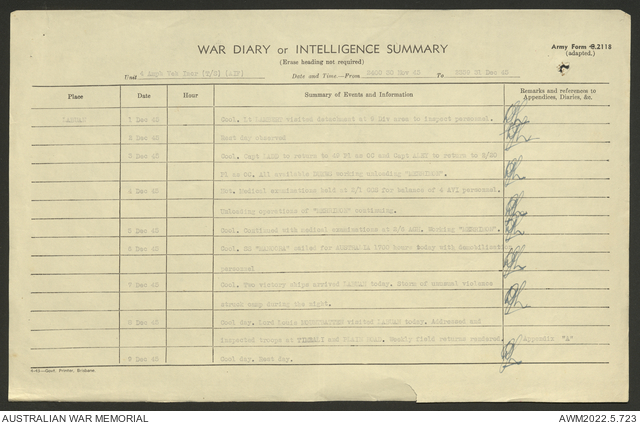 WAR DIARY or INTELLIGENCE SUMMARY
(Erase heading not required)
Army Form B.2118
(adapted.)
Unit 4 Amph Veh Tour [T/S] (AIF) Date and Time—From 2400 30 Nov 45 To 2359 31 Dec 45
Place Date Hour Summary of Events and Information Remarks and references to Appendices, Diaries, &c.
LABUAN 1 Dec 45 Cool. Lt visited detachment at 9 Div area to inspect personnel.
2 Dec 45 Rest Day observed
3 Dec 45 Cool. Capt to return to HQ Pl as OC and Capt to return to
Pl as OC. All available working unloading
4 Dec 45 Hot. Medical examinations held at 2/1 CCS for balance of 4 AVT personnel.
Unloading operations of continuing.
5 Dec 45 Cool. Continued with medical examinations at Working
6 Dec 45 Cool. sailed for AUSTRALIA 1700 hours today with demobilization
personnel
7 Dec 45 Cool. Two victory ships arrived LABUAN today. Storm of unusual violence
struck camp during the night.
8 Dec 45 Cool day. Lord Louis MOUNTBATTEN visited LABUAN today. Addressed and
inspected troops at and Weekly field returns rendered. Appendix "A"
9 Dec 45 Cool day. Rest day.
Govt. Printer, Brisbane.
AUSTRALIAN WAR MEMORIAL AWM2022.5.723